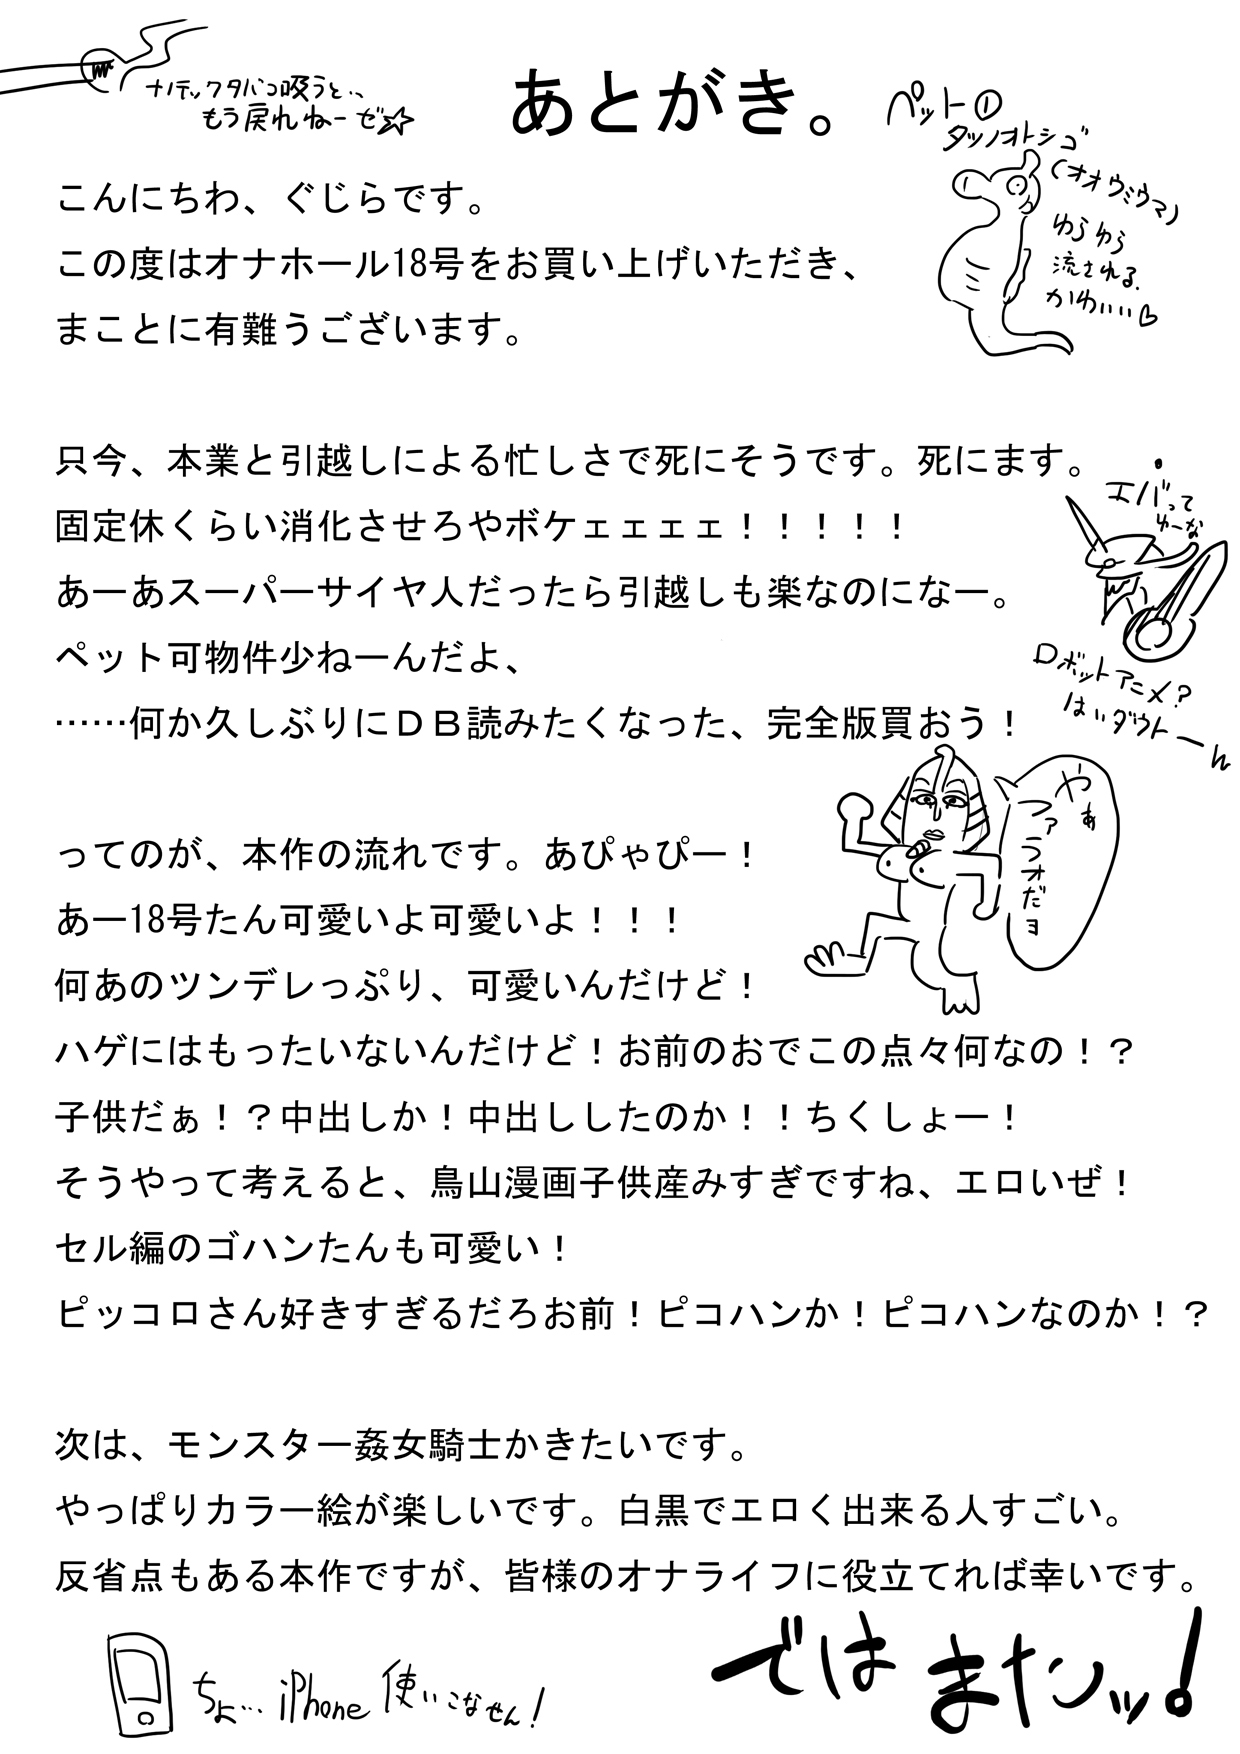 ナノテックタバコ吸うと、、
もう戻れねーぜ☆
あとがき。
ペット①
タツノオトシゴ
(オオウミウマ)
ゆらゆら
流される。
かわいい♡
こんにちわ、ぐじらです。
この度はオナホール18号をお買い上げいただき、
まことに有難うございます。
只今、本業と引越しによる忙しさで死にそうです。死にます。
固定休くらい消化させろやボケェェェェ！！！！！
あーあスーパーサイヤ人だったら引越しも楽なのになー。
ペット可物件少ねーんだよ、
……何か久しぶりにＤＢ読みたくなった、完全版買おう！
エバって
ゆーな
ロボットアニメ?
はいダウトーん
ってのが、本作の流れです。あぴゃぴー！
あー18号たん可愛いよ可愛いよ！！！
何あのツンデレっぷり、可愛いんだけど！
やぁ
ファラオだヨ
ハゲにはもったいないんだけど！お前のおでこの点々何なの！？
子供だぁ！？中出しか！中出ししたのか！！ちくしょー！
そうやって考えると、鳥山漫画子供産みすぎですね、エロいぜ！
セル編のゴハンたんも可愛い！
ピッコロさん好きすぎるだろお前！ピコハンか！ピコハンなのか！？
次は、モンスター姦女騎士かきたいです。
やっぱりカラー絵が楽しいです。白黒でエロく出来る人すごい。
反省点もある本作ですが、皆様のオナライフに役立てれば幸いです。
ちょ… iPhone 使いこなせん!
ではまたンッ!